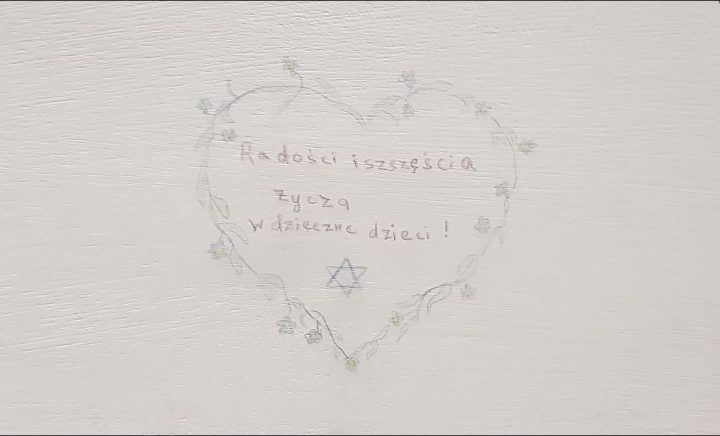 Radości i szszęścia
życzą
wdzięczne dzieci!